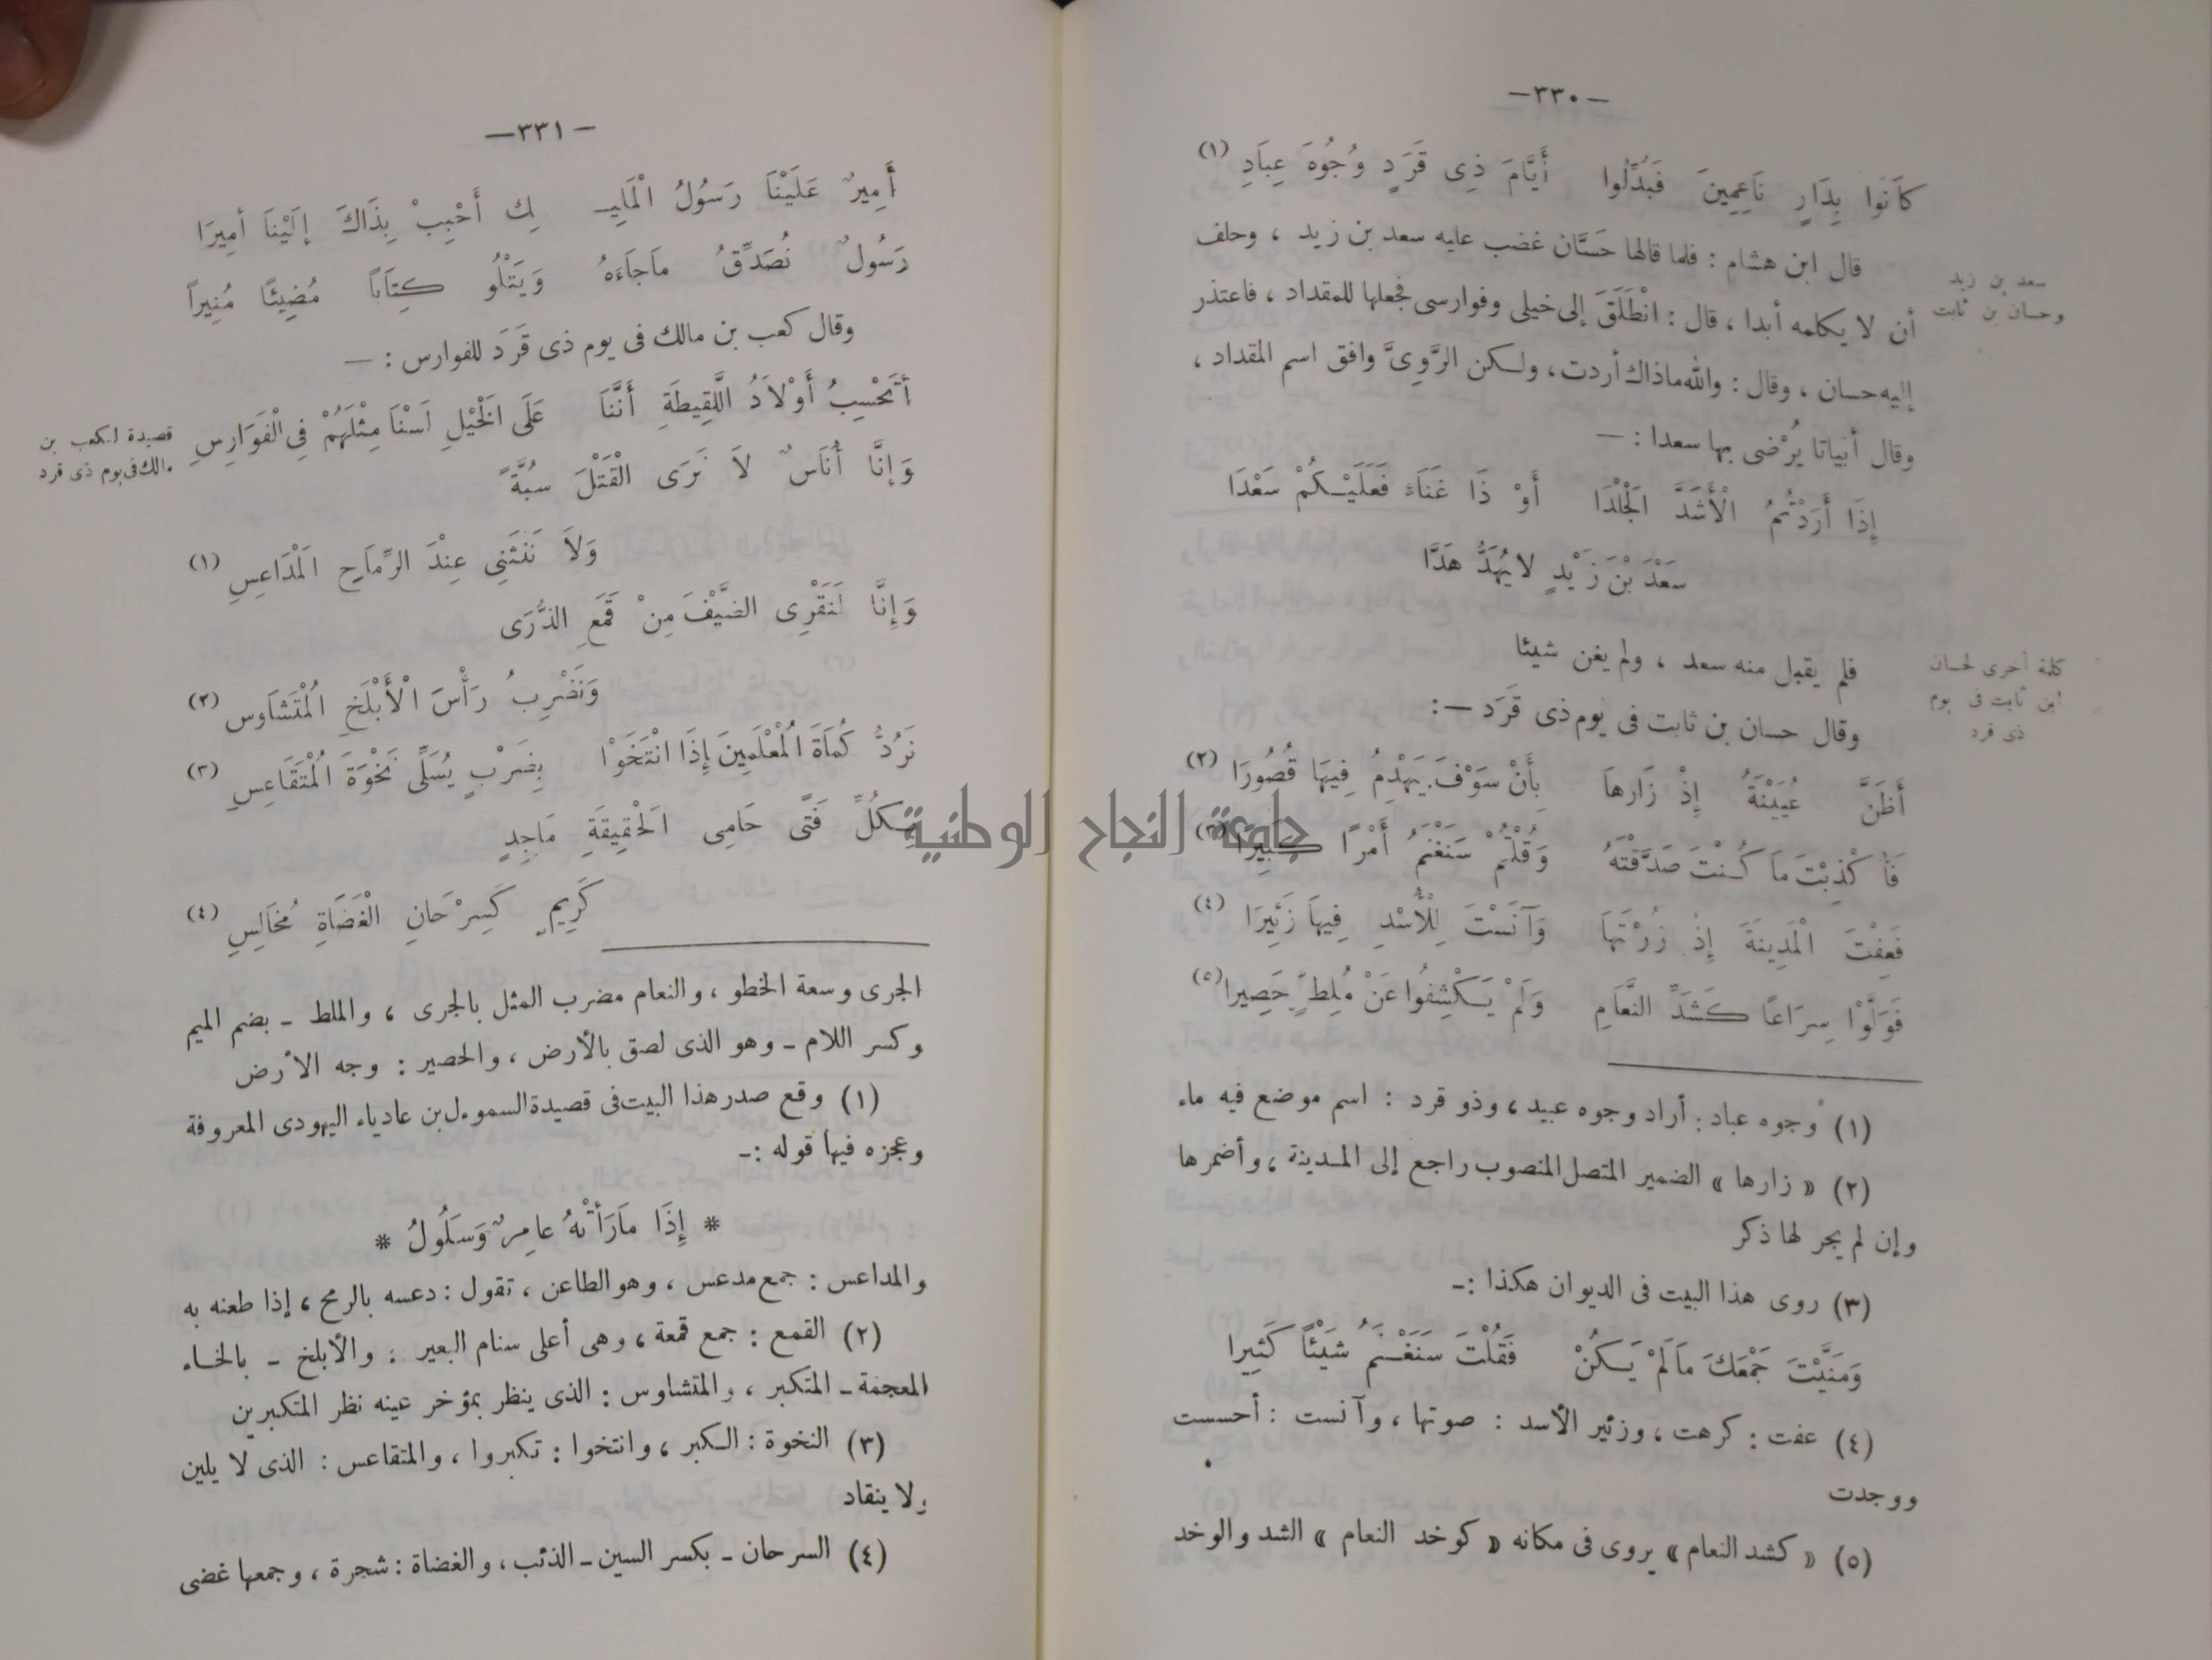 —٣٣٠—
كَانُوا بِدَارٍ نَاعِمِينَ فَبُدِّلُوا أَيَّامَ ذِى قَرَدٍ وُجُوهَ عِبَادِ (١)
قال ابن هشام : فلما قالها حَسَّان غضب عليه سعد بن زيد ، وحلف
أن لا يكلمه أبدا ، قال : انْطَلَقَ إلى خيلى وفوارسى فجعلها للمقداد ، فاعتذر
إليه حسان ، وقال : والله ماذاك أردت ، ولكن الرَّوِىَّ وافق اسم المقداد ،
وقال أبياتا يُرْضى بها سعدا : —
سعد بن زيد
وحسان بن ثابت
إِذَا أَرَدْتُمُ الْأَشَدَّ الْجَلْدَا أَوْ ذَا غَنَاءَ فَعَلَيْكُمْ سَعْدَا
سَعْدَ بْنَ زَيْدٍ لا يُهَدُّ هَدَّا
فلم يقبل منه سعد ، ولم يغن شيئا
وقال حسان بن ثابت فى يوم ذى قَرَد —:
كلمة أخرى لحسان
ابن ثابت فى يوم
ذى قرد
أَظَنَّ عُيَيْنَةُ إِذْ زَارَهَا بِأَنْ سَوْفَ يَهْدِمُ فِيهَا قُصُورَا (٢)
فَأَكْذِبْتَ مَا كُنْتَ صَدَّقْتَهُ وَقُلْتُمْ سَنَغْنَمُ أَمْرًا كَبِيرَا (٣)
فَعِفْتَ الْمَدِينَةَ إِذْ زُرْتَهَا وَآنَسْتَ لِلْأُسْدِ فِيهَا زَئِيرَا (٤)
فَوَلَّوْا سِرَاعًا كَشَدِّ النَّعَامِ وَلَمْ يَكْشِفُوا عَنْ مُلِطٍّ حَصِيرا (٥)
(١) وجوه عباد : أراد وجوه عبيد ، وذو قرد : اسم موضع فيه ماء
(٢) « زارها » الضمير المتصل المنصوب راجع إلى المدينة ، وأضمرها
وإن لم يجر لها ذكر
(٣) روى هذا البيت فى الديوان هكذا :—
وَمَنَّيْتَ جَمْعَكَ مَا لَمْ يَكُنْ فَقُلْتَ سَنَغْنَمُ شَيْئًا كَثِيرا
(٤) عفت : كرهت ، وزئير الأسد : صوتها ، وآنست : أحسست
ووجدت
(٥) « كشد النعام » يروى فى مكانه « كوخد النعام » الشد والوخد
—٣٣١—
أَمِيرٌ عَلَيْنَا رَسُولُ الْمَلِيـ ـكِ أَحْبِبْ بِذَاكَ إِلَيْنَا أَمِيرَا
رَسُولٌ نُصَدِّقُ مَا جَاءَهُ وَيَتْلُو كِتَابًا مُضِيئًا مُنِيراً
وقال كعب بن مالك فى يوم ذى قَرَدَ للفوارس : —
أَتَحْسِبُ أَوْلَادُ اللَّقِيطَةِ أَنَّنَا عَلَى الْخَيْلِ لَسْنَا مِثْلَهُمْ فِى الْفَوَارِسِ
قصيدة لكعب بن
مالك فى يوم ذى قرد
وَإِنَّا أُنَاسٌ لَا نَرَى الْقَتْلَ سُبَّةً
وَلَا نَنْثَنِى عِنْدَ الرِّمَاحِ الْمَدَاعِسِ (١)
وَإِنَّا لَنَقْرِى الضَّيْفَ مِنْ قَمَعِ الذُّرَى
وَنَضْرِبُ رَأْسَ الْأَبْلَخِ الْمُتَشَاوِسِ (٢)
نَرُدُّ كُمَاةَ الْمُعْلَمِينَ إِذَا انْتَخَوْا بِضَرْبٍ يُسَلِّى نَخْوَةَ الْمُتَقَاعِسِ (٣)
بِكُلِّ فَتًى حَامِى الْحَقِيقَةِ مَاجِدٍ
كَرِيمٍ كَسِرْحَانِ الْغَضَاةِ مُخَالِسِ (٤)
الجرى وسعة الخطو ، والنعام مضرب المثل بالجرى ، والملط ـ بضم الميم
وكسر اللام ـ وهو الذى لصق بالأرض ، والحصير : وجه الأرض
(١) وقع صدر هذا البيت فى قصيدة السموءل بن عادياء اليهودى المعروفة
وعجزه فيها قوله :—
* إِذَا مَا رَأَتْهُ عامِرٌ وَسَلُولُ *
والمداعس : جمع مدعس ، وهو الطاعن ، تقول : دعسه بالرمح ، إذا طعنه به
(٢) القمع : جمع قمعة ، وهى أعلى سنام البعير : والأبلخ ـ بالخاء
المعجمة ـ المتكبر ، والمتشاوس : الذى ينظر بمؤخر عينه نظر المتكبرين
(٣) النخوة : الكبر ، وانتخوا : تكبروا ، والمتقاعس : الذى لا يلين
ولا ينقاد
(٤) السرحان ـ بكسر السين ـ الذئب ، والغضاة : شجرة ، وجمعها غضى
جامعة النجاح الوطنية